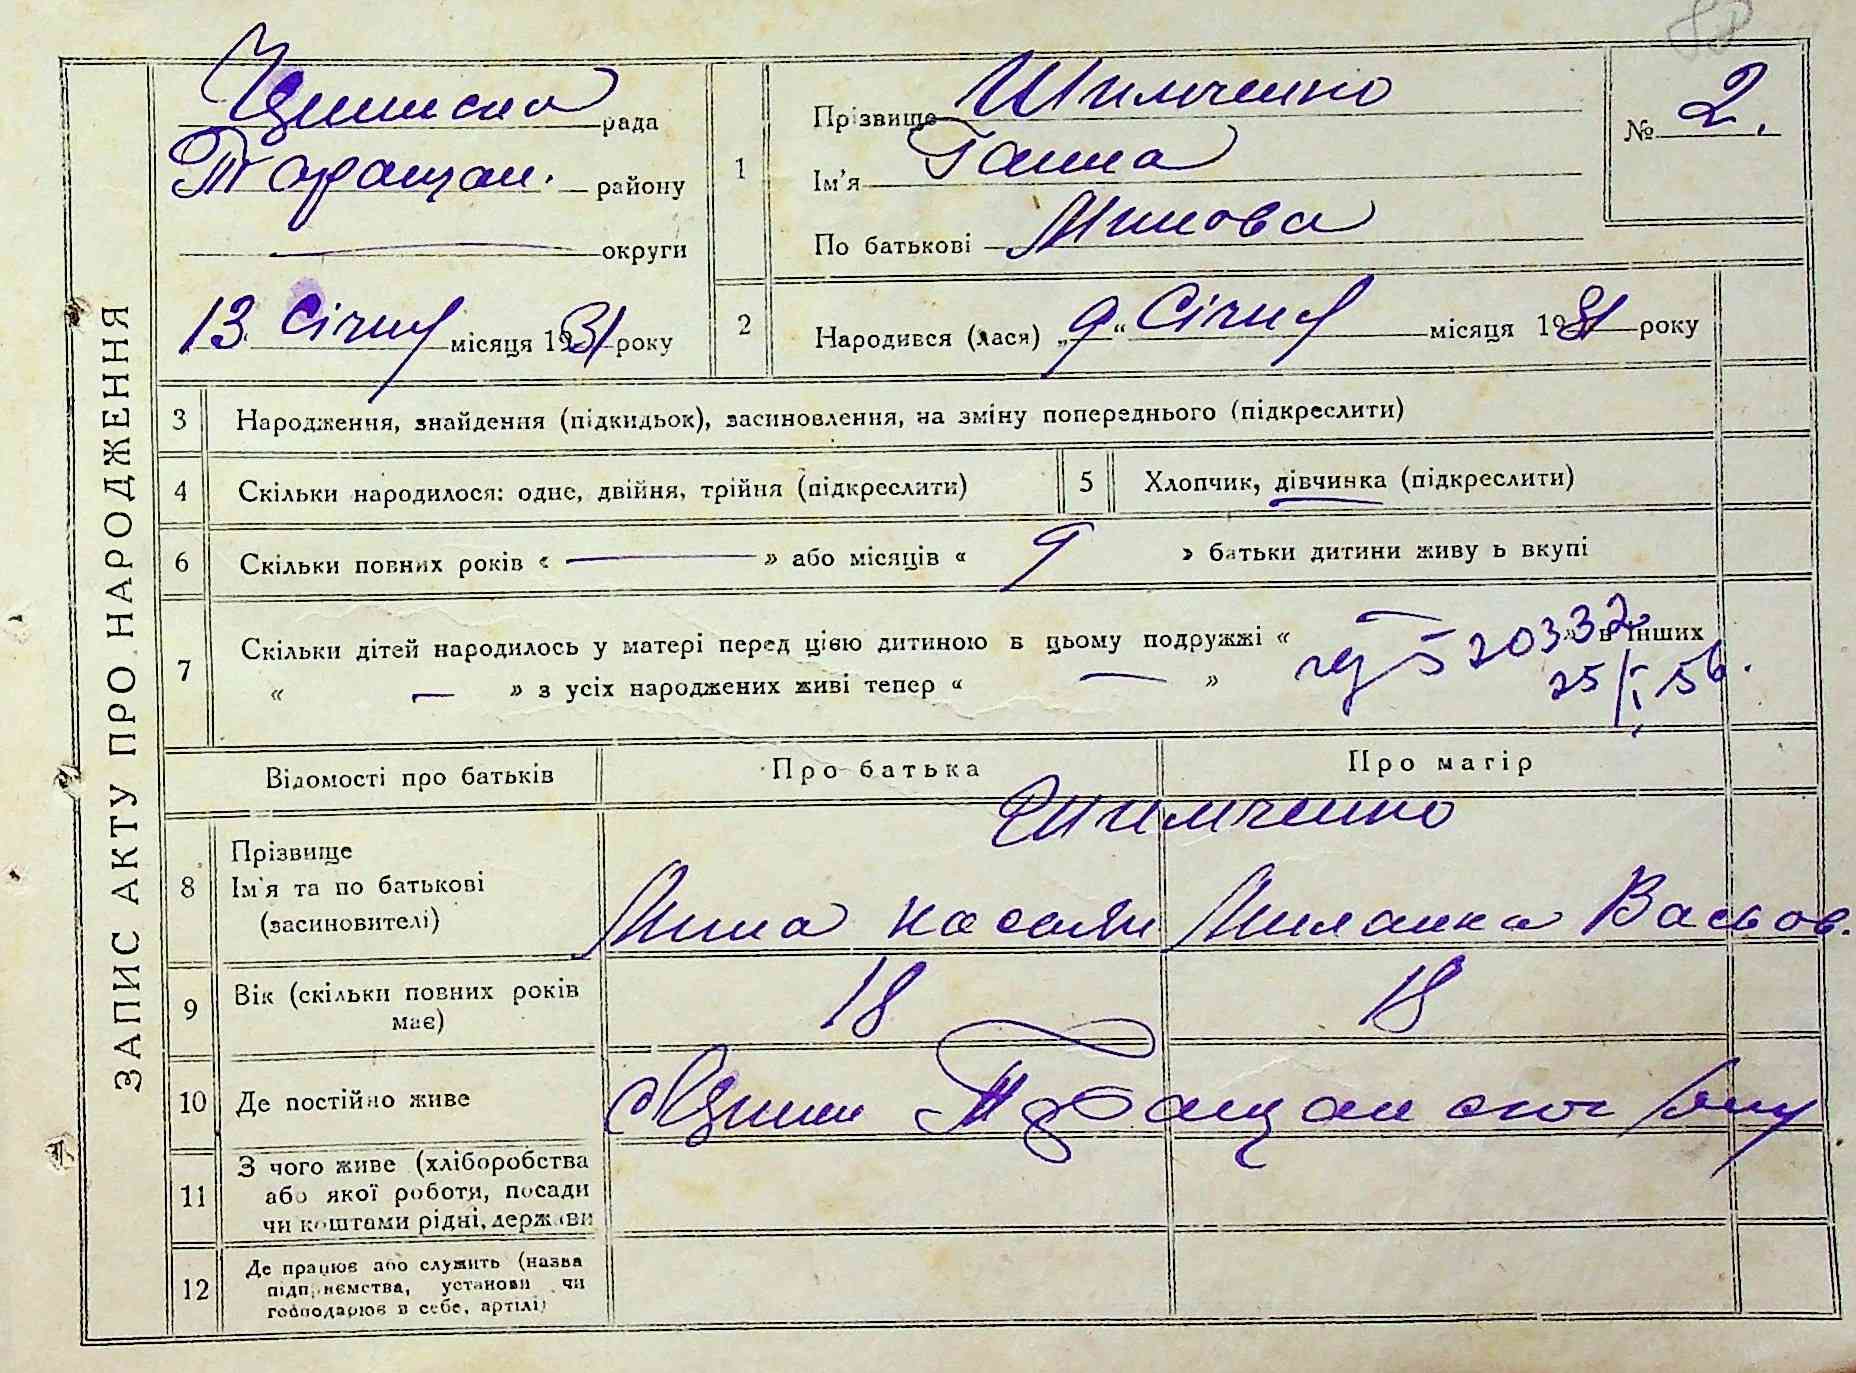 ЗАПИС АКТУ ПРО НАРОДЖЕННЯ
рада
Таращан. району
округи
13 Січня місяця 1931 року
1
Прізвище Шимченко
Ім'я Ганна
По батькові Минова
№ 2.
2 Народився (лася) „9“ Січня місяця 1931 року
3 Народження, знайдення (підкидьок), засиновлення, на зміну попереднього (підкреслити)
4 Скільки народилося: одне, двійня, трійня (підкреслити)
5 Хлопчик, дівчинка (підкреслити)
6 Скільки повних років « — » або місяців « 9 » батьки дитини живуть вкупі
7 Скільки дітей народилось у матері перед цією дитиною в цьому подружжі « — » в інших
« — » з усіх народжених живі тепер « — »
520332
25/I 56.
Відомості про батьків
Про батька
Про матір
8 Прізвище
Ім'я та по батькові
(засиновителі)
Шимченко
Мина Касьян
Миланка Васьов.
9 Вік (скільки повних років
має)
18
18
10 Де постійно живе
Таращанского
11 З чого живе (хліборобства
або якої роботи, посади
чи коштами рідні, держави
12 Де працює або служить (назва
підприємства, установи чи
господарює в себе, артілі)